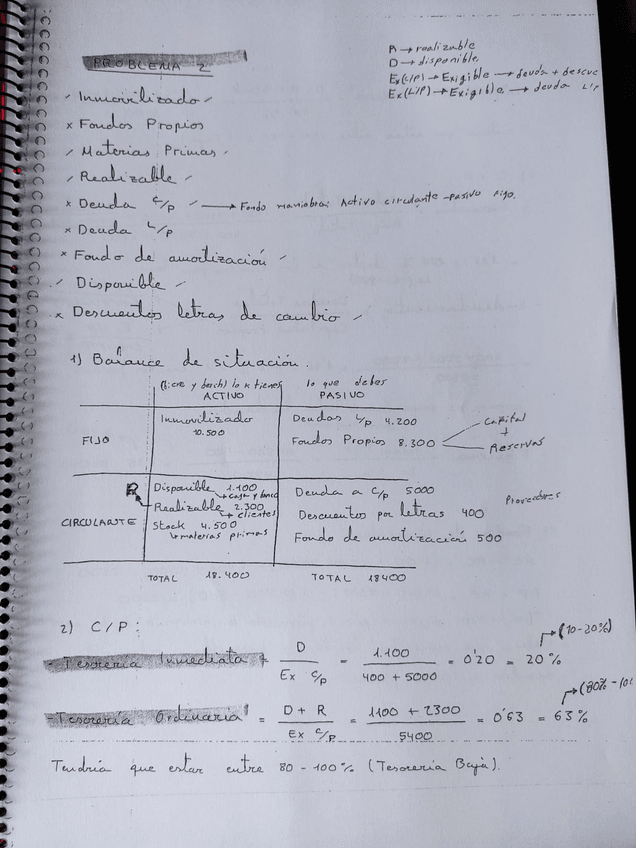 PROBLEMA 2
R → realizable
D → disponible
Ex(L/P) → Exigible → deuda + descue
Ex(L/P) → Exigible → deuda L/P
✓ Inmovilizado ✓
x Fondos Propios
✓ Materias Primas ✓
✓ Realizable ✓
x Deuda C/p ✓ → Fondo maniobra: Activo circulante - pasivo fijo.
x Deuda L/p
x Fondo de amortización ✓
✓ Disponible ✓
x Descuentos letras de cambio ✓
1) Balance de situación.
lo k tienes lo que debes
ACTIVO PASIVO
FIJO
Inmovilizado 10.500
Deudas L/p 4.200
Fondos Propios 8.300
Capital + Reservas
CIRCULANTE
R
Disponible 1.100
→ caja y banco
Realizable 2.300
→ clientes
Stock 4.500
↳ materias primas
Deuda a C/p 5000
Proveedores
Descuentos por letras 400
Fondo de amortización 500
TOTAL 18.400 TOTAL 18400
2) C/P:
(10-20%)
- Tesorería Inmediata = D / Ex C/p = 1.100 / 400 + 5000 = 0'20 = 20%
(80% - 10
- Tesorería Ordinaria = D + R / Ex C/p = 1100 + 2300 / 5400 = 0'63 = 63%
Tendría que estar entre 80 - 100% (Tesorería Baja).